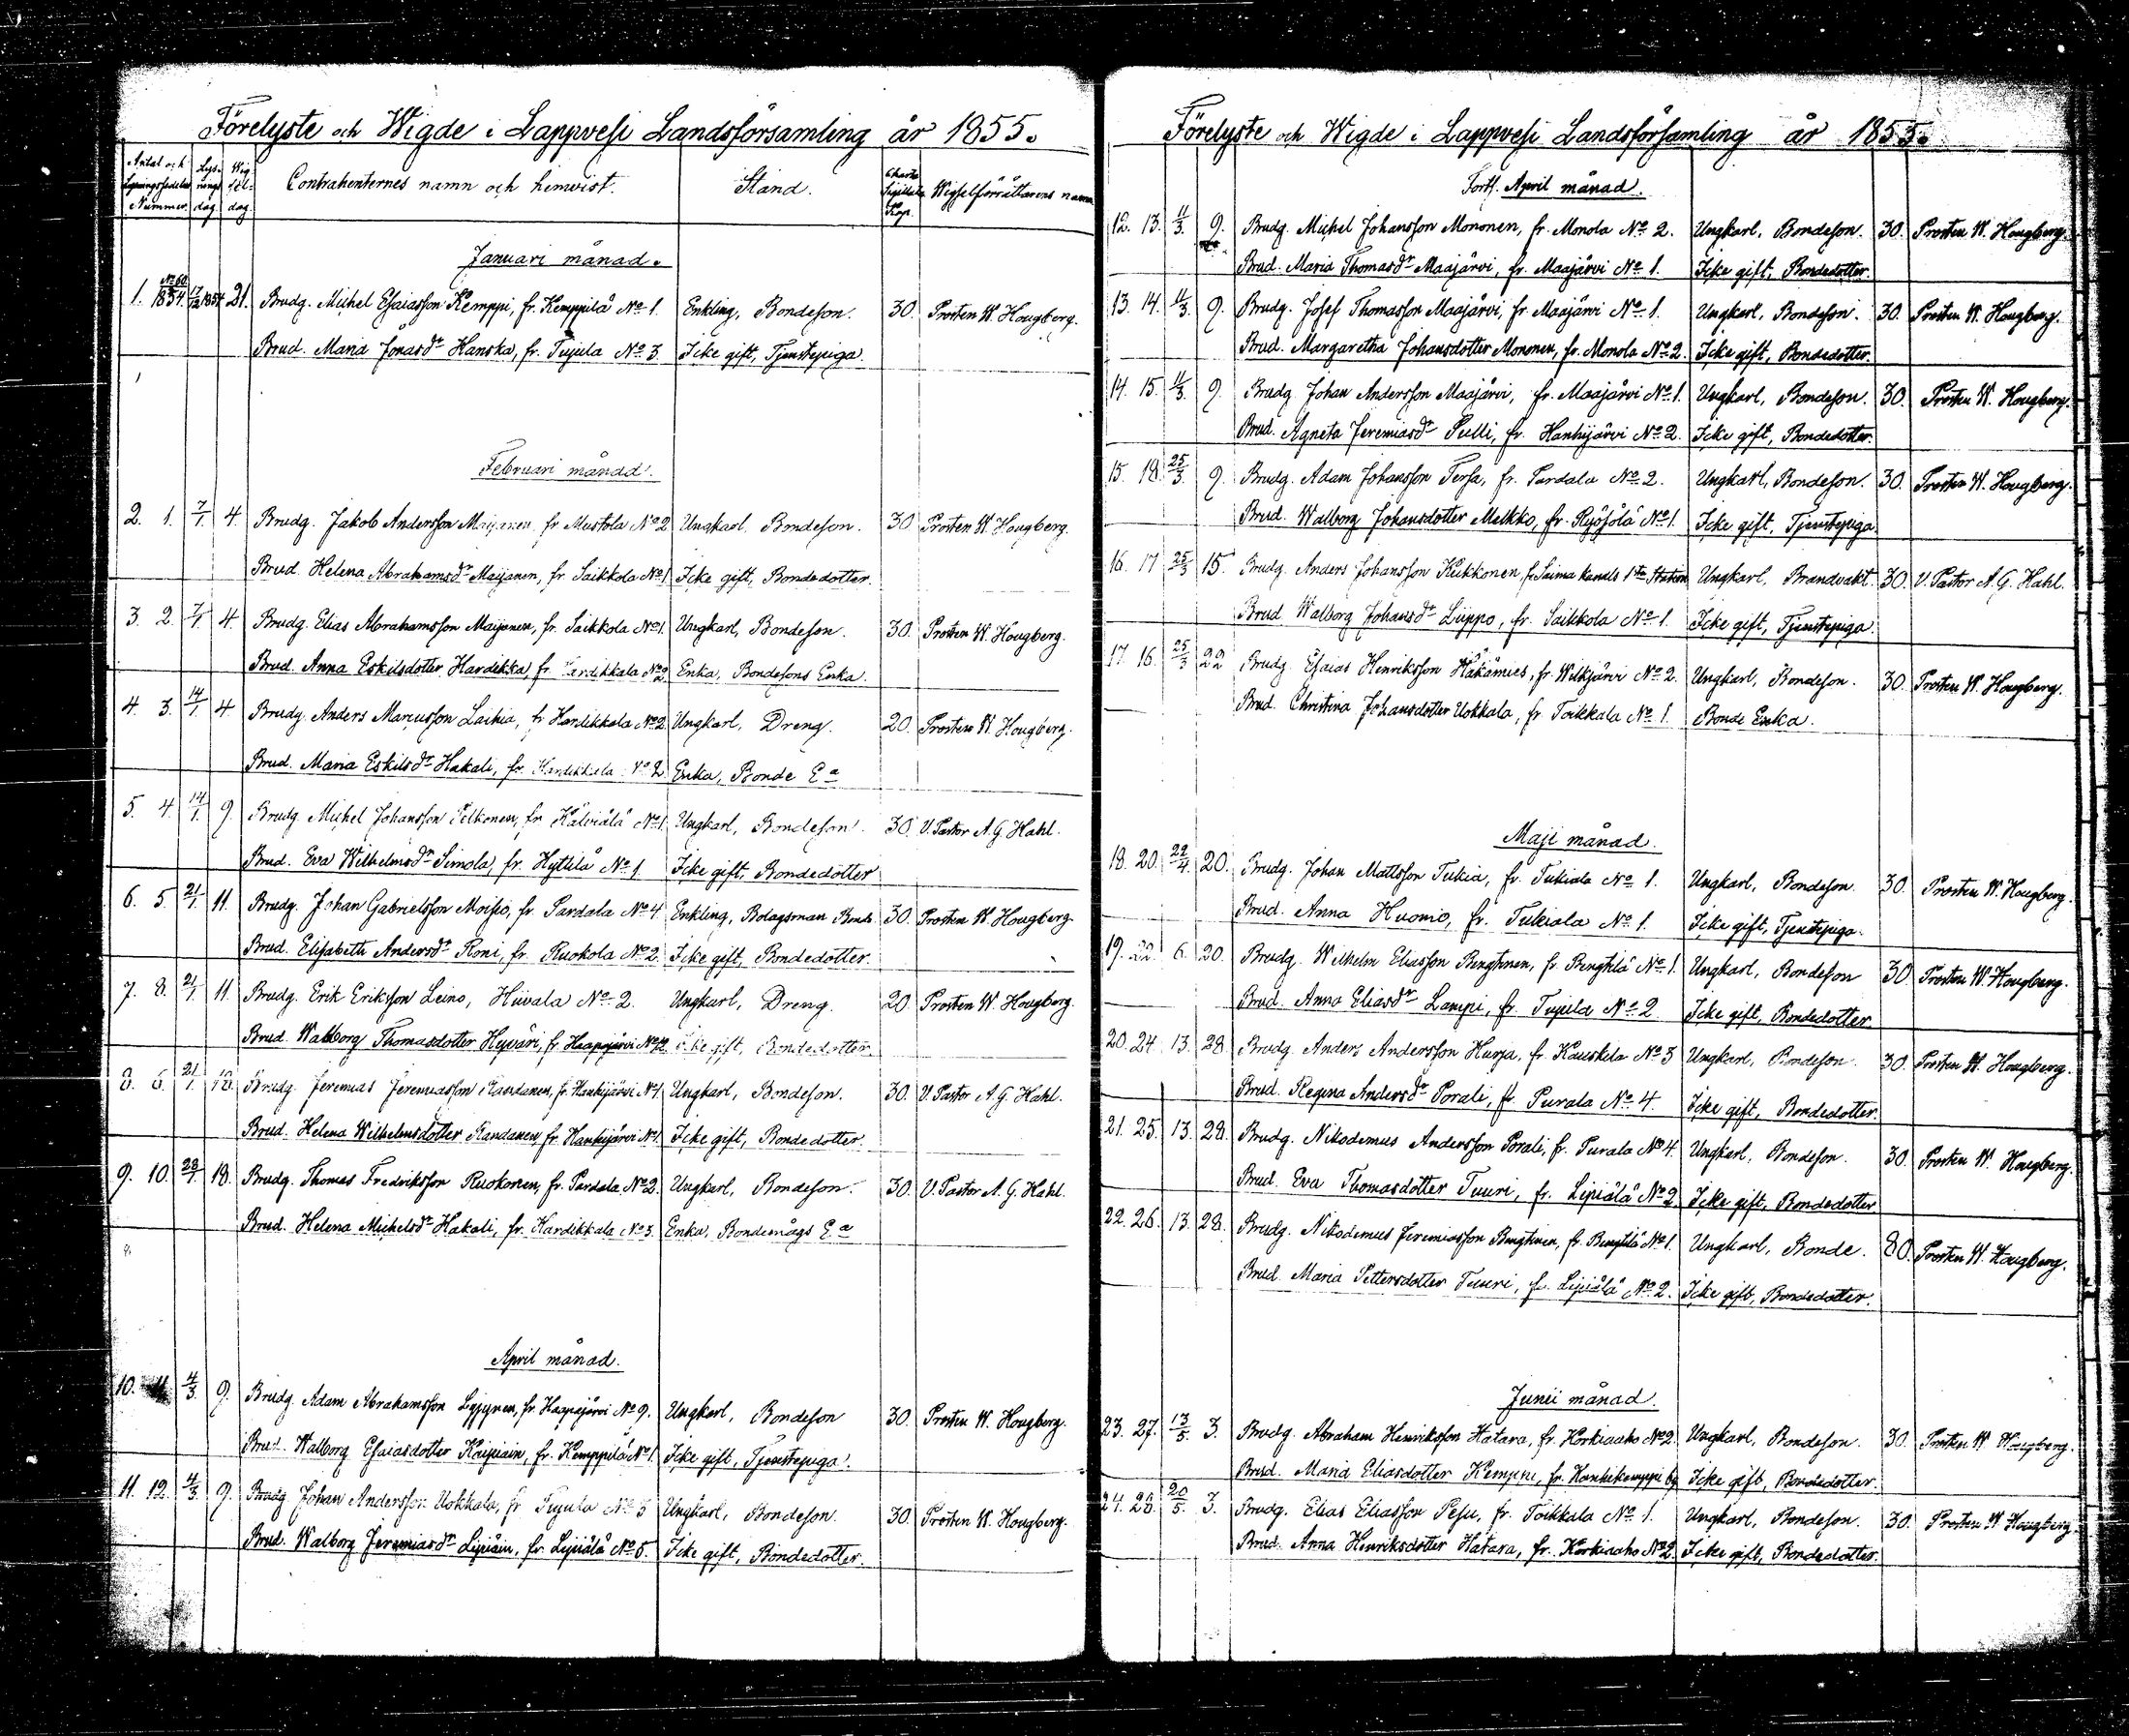 Förelyste och Wigde i Lappvesi Landsförsamling år 1855.
Antal och Lysningssedelns Nummer. Lysnings dag. Wigsel-dag. Contrahenternes namn och hemvist. Stånd. Charta Sigillata Kop. Wigselförrättarens namn
Januari månad.
1. No 60. 1854. 17/12 1854 21. Brudg. Michel Esaiasson Kemppi, fr. Kemppilä No 1. Enkling, Bondeson. 30. Prosten W. Hougberg.
Brud. Maria Jonasdr Hanska, fr. Tujula No 3. Icke gift, Tjenstepiga.
Februari månad.
2. 1. 7/1 4. Brudg. Jakob Andersson Maijanen, fr Mustola No 2 Ungkarl, Bondeson. 30 Prosten W. Hougberg.
Brud. Helena Abrahamsdr Maijanen, fr. Saikkola No 1 Icke gift, Bondedotter.
3. 2. 7/1 4. Brudg. Elias Abrahamsson Maijanen, fr. Saikkola No 1. Ungkarl, Bondeson. 30. Prosten W. Hougberg.
Brud. Anna Eskilsdotter Hardikka, fr. Kardikkala No 2 Enka, Bondesons Enka.
4. 3. 14/1 4 Brudg. Anders Marcusson Laihia, fr. Kardikkala No 2 Ungkarl, Dreng. 20. Prosten W. Hougberg.
Brud. Maria Eskilsdr Hakali, fr. Kardikkala No 2 Enka, Bonde Ea
5. 4. 14/1 9. Brudg. Michel Johansson Pelkonen, fr Kälviälä No 1. Ungkarl, Bondeson. 30. V. Pastor A. G. Hahl.
Brud. Eva Wilhelmsdr Simola, fr. Hyttilä No 1. Icke gift, Bondedotter
6. 5. 21/1 11. Brudg. Johan Gabrielsson Moisio, fr. Pardala No 4 Enkling, Bolagsman Bonde. 30. Prosten W. Hougberg.
Brud. Elisabeth Andersdr Roni, fr. Ruokola No 2. Icke gift, Bondedotter.
7. 8. 21/1 11. Brudg. Erik Eriksson Leino, Hiivala No 2. Ungkarl, Dreng. 20 Prosten W. Hougberg.
Brud. Walborg Thomasdotter Hyväri, fr Haapajärvi No Icke gift, Bondedotter.
8. 6. 21/1 18. Brudg. Jeremias Jeremiasson Randanen, fr. Hanhijärvi No 1. Ungkarl, Bondeson. 30. V. Pastor A. G. Hahl.
Brud. Helena Wilhelmsdotter Randanen, fr. Hanhijärvi No 1. Icke gift, Bondedotter.
9. 10. 28/1 18. Brudg. Thomas Fredriksson Ruokonen, fr. Pardala No 2. Ungkarl, Bondeson. 30. V. Pastor A. G. Hahl.
Brud. Helena Michelsdr Hakali, fr. Kardikkala No 3. Enka, Bondemågs Ea
April månad.
10. 11 4/3. 9. Brudg. Adam Abrahamsson Lyijynen, fr. Haapajärvi No 9. Ungkarl, Bondeson 30. Prosten W. Hougberg.
Brud. Walborg Esaiasdotter Kaipiain, fr. Kemppilä No 1. Icke gift, Tjenstepiga.
11. 12. 4/3. 9. Brudg. Johan Andersson Uokkala, fr Tujula No 3 Ungkarl, Bondeson. 30. Prosten W. Hougberg.
Brud. Walborg Jeremiasdr Lipiäin, fr. Lipiälä No 5. Icke gift, Bondedotter.
Förelyste och Wigde i Lappvesi Landsförsamling år 1855.
Forts. April månad.
12. 13. 11/3. 9. Brudg. Michel Johansson Mononen, fr. Monola No 2. Ungkarl, Bondeson. 30. Prosten W. Hougberg.
Brud. Maria Thomasdr Maajärvi, fr. Maajärvi No 1. Icke gift, Bondedotter.
13. 14. 11/3. 9. Brudg. Josef Thomasson Maajärvi, fr. Maajärvi No 1. Ungkarl, Bondeson. 30. Prosten W. Hougberg.
Brud. Margaretha Johansdotter Mononen, fr. Monola No 2. Icke gift, Bondedotter.
14. 15. 11/3. 9. Brudg. Johan Andersson Maajärvi, fr. Maajärvi No 1. Ungkarl, Bondeson. 30. Prosten W. Hougberg.
Brud. Agneta Jeremiasdr Pulli, fr. Hanhijärvi No 2. Icke gift, Bondedotter.
15. 18. 25/3 9. Brudg. Adam Johansson Tersa, fr. Pardala No 2. Ungkarl, Bondeson. 30. Prosten W. Hougberg.
Brud. Walborg Johansdotter Melkko, fr. Ryösölä No 1. Icke gift, Tjenstepiga.
16. 17 25/3 15. Brudg. Anders Johansson Kukkonen, fr Saima kanals 1sta Station Ungkarl, Brandvakt. 30. V. Pastor A. G. Hahl.
Brud. Walborg Johansdr Liippo, fr. Saikkola No 1. Icke gift, Tjenstepiga.
17. 16. 25/3 22 Brudg. Esaias Henriksson Häkämies, fr. Wilkjärvi No 2. Ungkarl, Bondeson. 30. Prosten W. Hougberg.
Brud. Christina Johansdotter Uokkala, fr. Toikkala No 1. Bonde Enka.
Maji månad.
18. 20. 22/4 20. Brudg. Johan Mattsson Tukia, fr. Tukiala No 1. Ungkarl, Bondeson 30. Prosten W. Hougberg.
Brud. Anna Huomo, fr. Tukiala No 1. Icke gift, Tjenstepiga.
19. 22. 6. 20. Brudg. Wilhelm Eliasson Bengtinen, fr. Bengtilä No 1. Ungkarl, Bondeson 30. Prosten W. Hougberg.
Brud. Anna Eliasdr Lampi, fr. Tujula No 2. Icke gift, Bondedotter
20. 24. 13. 28. Brudg. Anders Andersson Hurja, fr. Kauskila No 3 Ungkarl, Bondeson. 30. Prosten W. Hougberg.
Brud. Regina Andersdr Porali, fr. Purala No 4. Icke gift, Bondedotter.
21. 25. 13. 28. Brudg. Nikodemus Andersson Porali, fr. Purala No 4. Ungkarl, Bondeson. 30. Prosten W. Hougberg.
Brud. Eva Thomasdotter Tuuri, fr. Lipiälä No 2. Icke gift, Bondedotter
22. 26. 13. 28. Brudg. Nikodemus Jeremiasson Bengtinen, fr. Bengtilä No 1. Ungkarl, Bonde. 80. Prosten W. Hougberg.
Brud. Maria Pettersdotter Tuuri, fr. Lipiälä No 2. Icke gift, Bondedotter.
Junii månad.
23. 27. 13/5 3. Brudg. Abraham Henriksson Hatara, fr. Korkiaaho No 2. Ungkarl, Bondeson. 30. Prosten W. Hougberg.
Brud. Maria Eliasdotter Kemppi, fr. Hanhikemppi by Icke gift, Bondedotter.
24. 28. 20/5. 3. Brudg. Elias Eliasson Pesu, fr. Toikkala No 1. Ungkarl, Bondeson. 30. Prosten W Hougberg.
Brud. Anna Henriksdotter Hatara, fr. Korkiaaho No 2. Icke gift, Bondedotter.